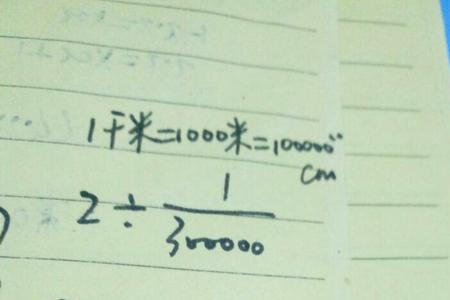 1千米=1000米=100000
cm
2÷1/300000